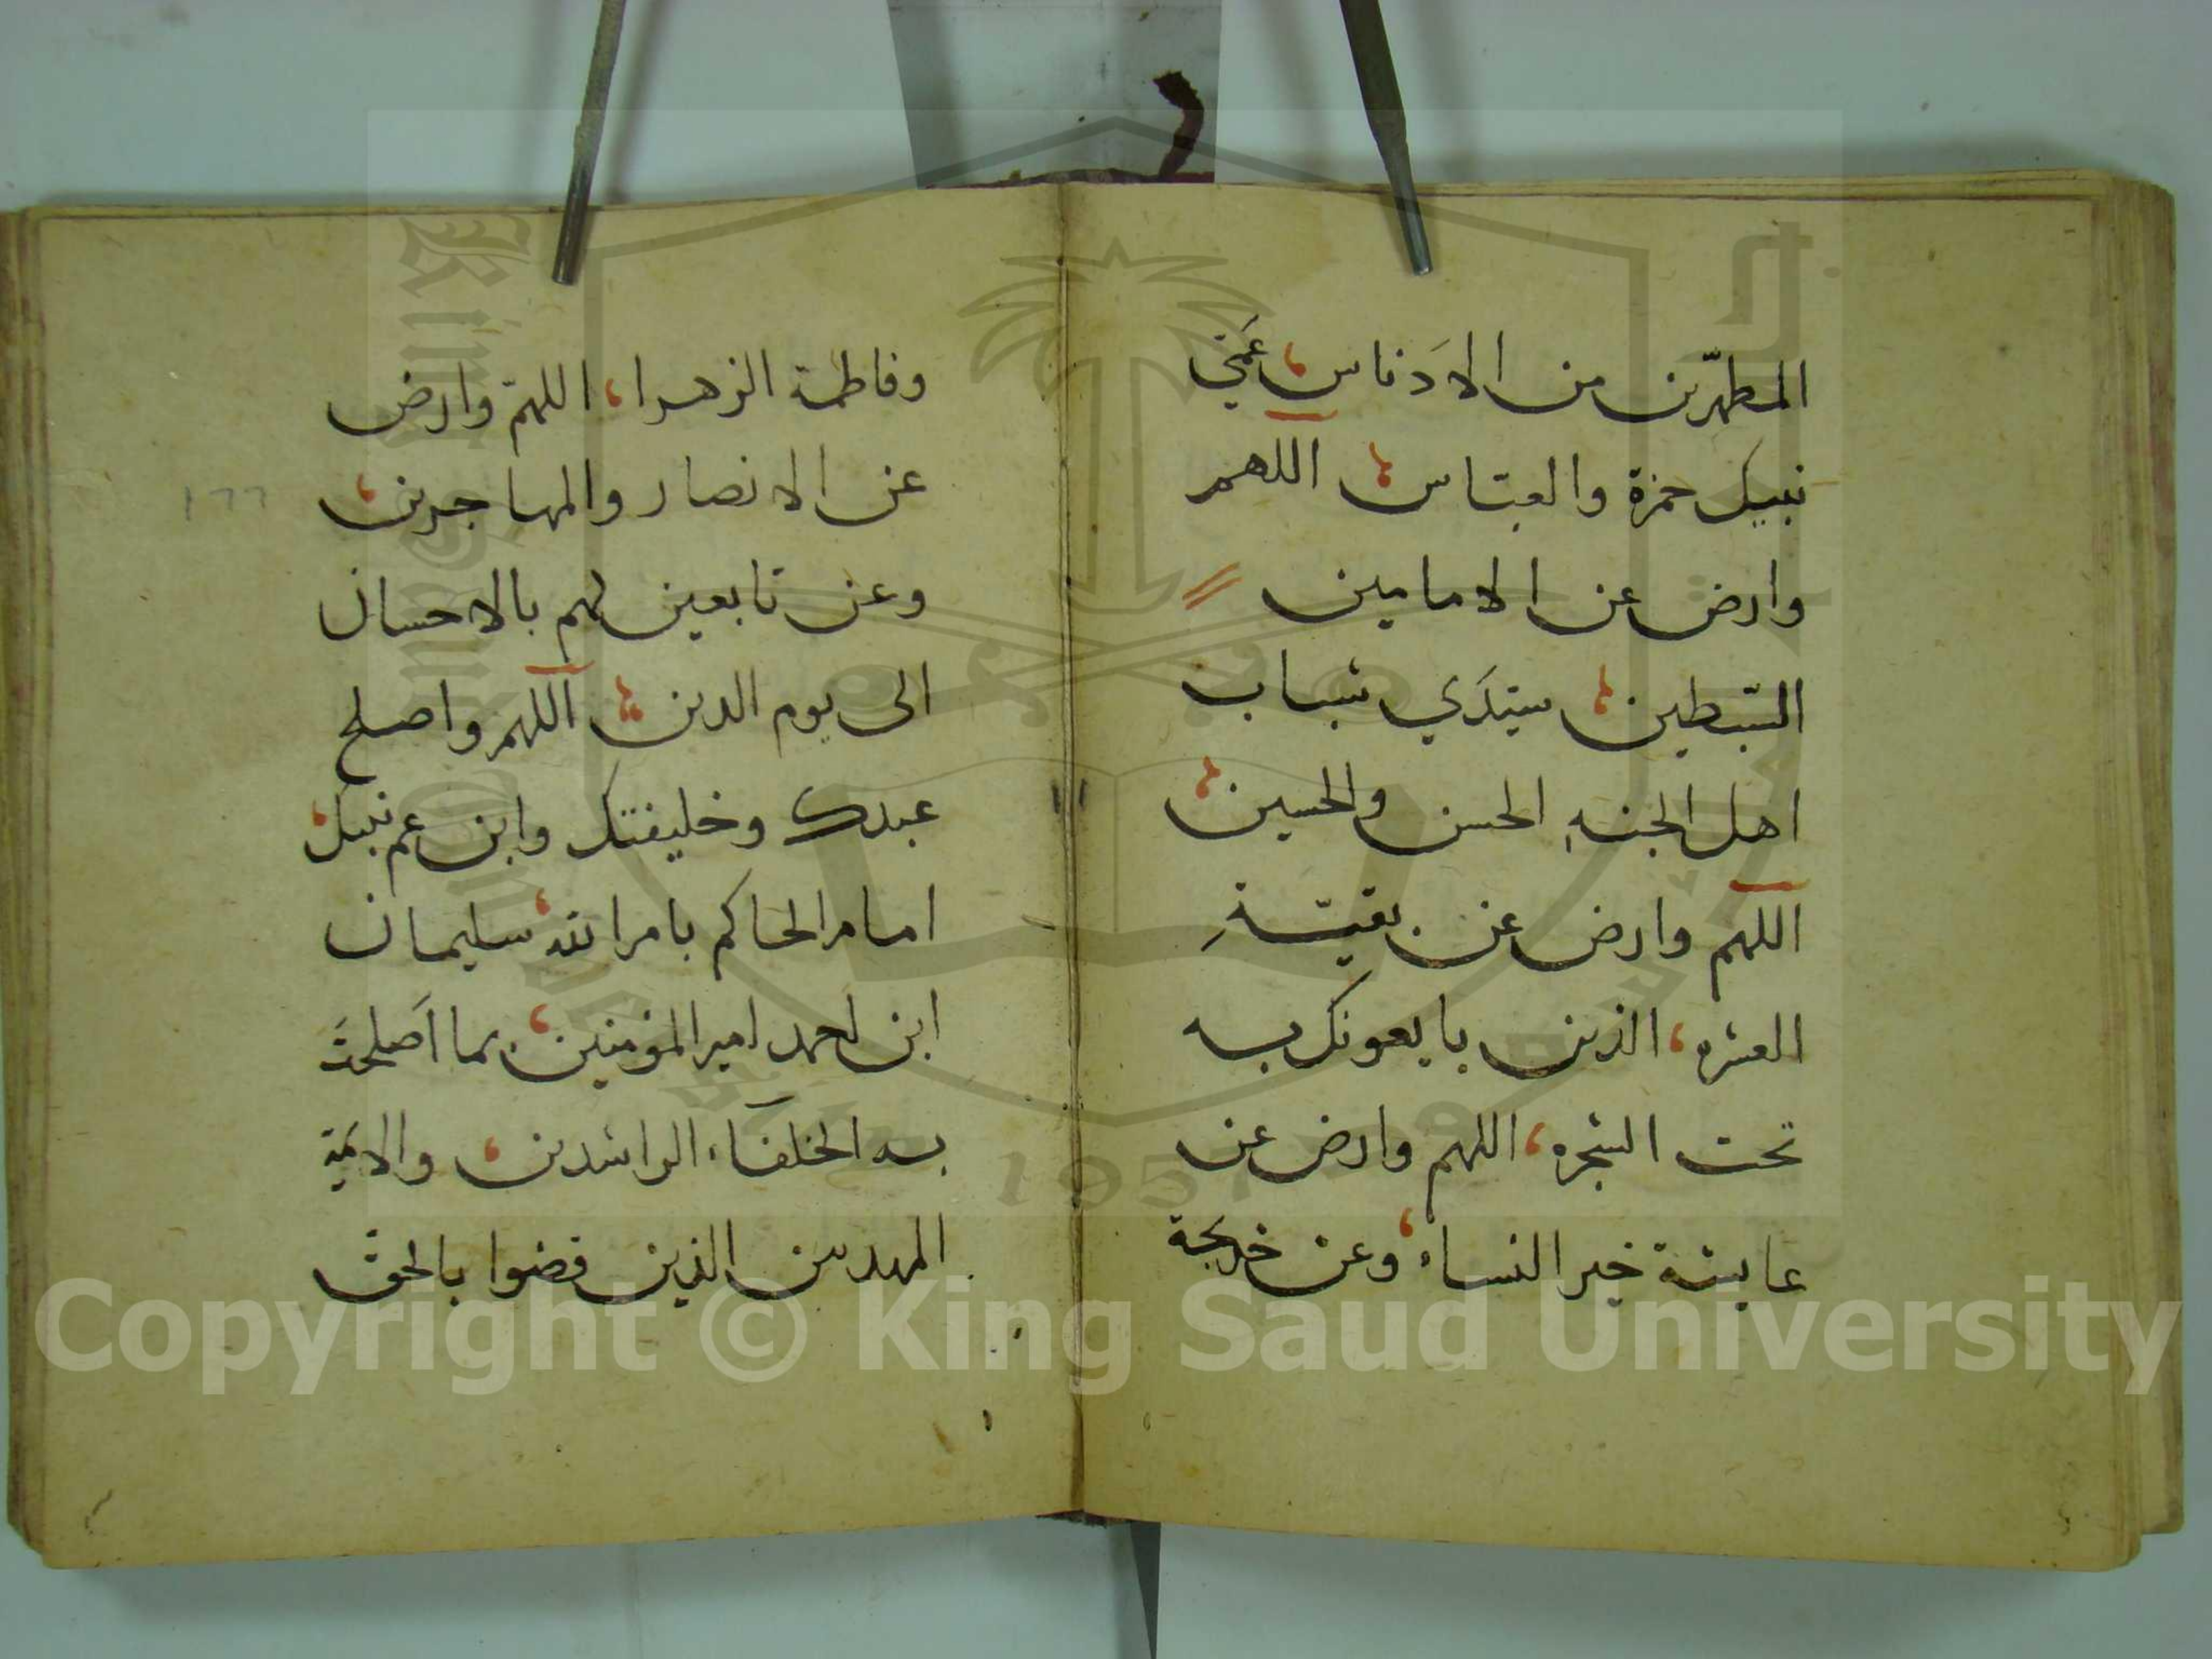 المطهّرين من الادَناس عَمَّي
نبيك حمزة والعبّاس اللهم
وارض عن الامامين
السّبطين سيّدَي شباب
اهل الجنهِ الحسن والحسين
اللهم وارض عن بقيّةِ
العشره الذين بايعونك به
تحت الشجره اللهم وارض عن
عايشة خير النساء وعن خديجة
وفاطمة الزهراء اللهمّ وارض
عن الانصار والمهاجرين
وعن تابعين لهم بالاحسان
الى يوم الدين اللهم واصلح
عبدك وخليفتك وابن عم نبيك
امام الحاكم بامر الله سليمان
ابن احمد امير المؤمنين بما اَصلحتَ
به الخلفاء الراشدين والايمّة
المهديين الذين قضوا بالحق
١٦٦
1957
Copyright © King Saud University